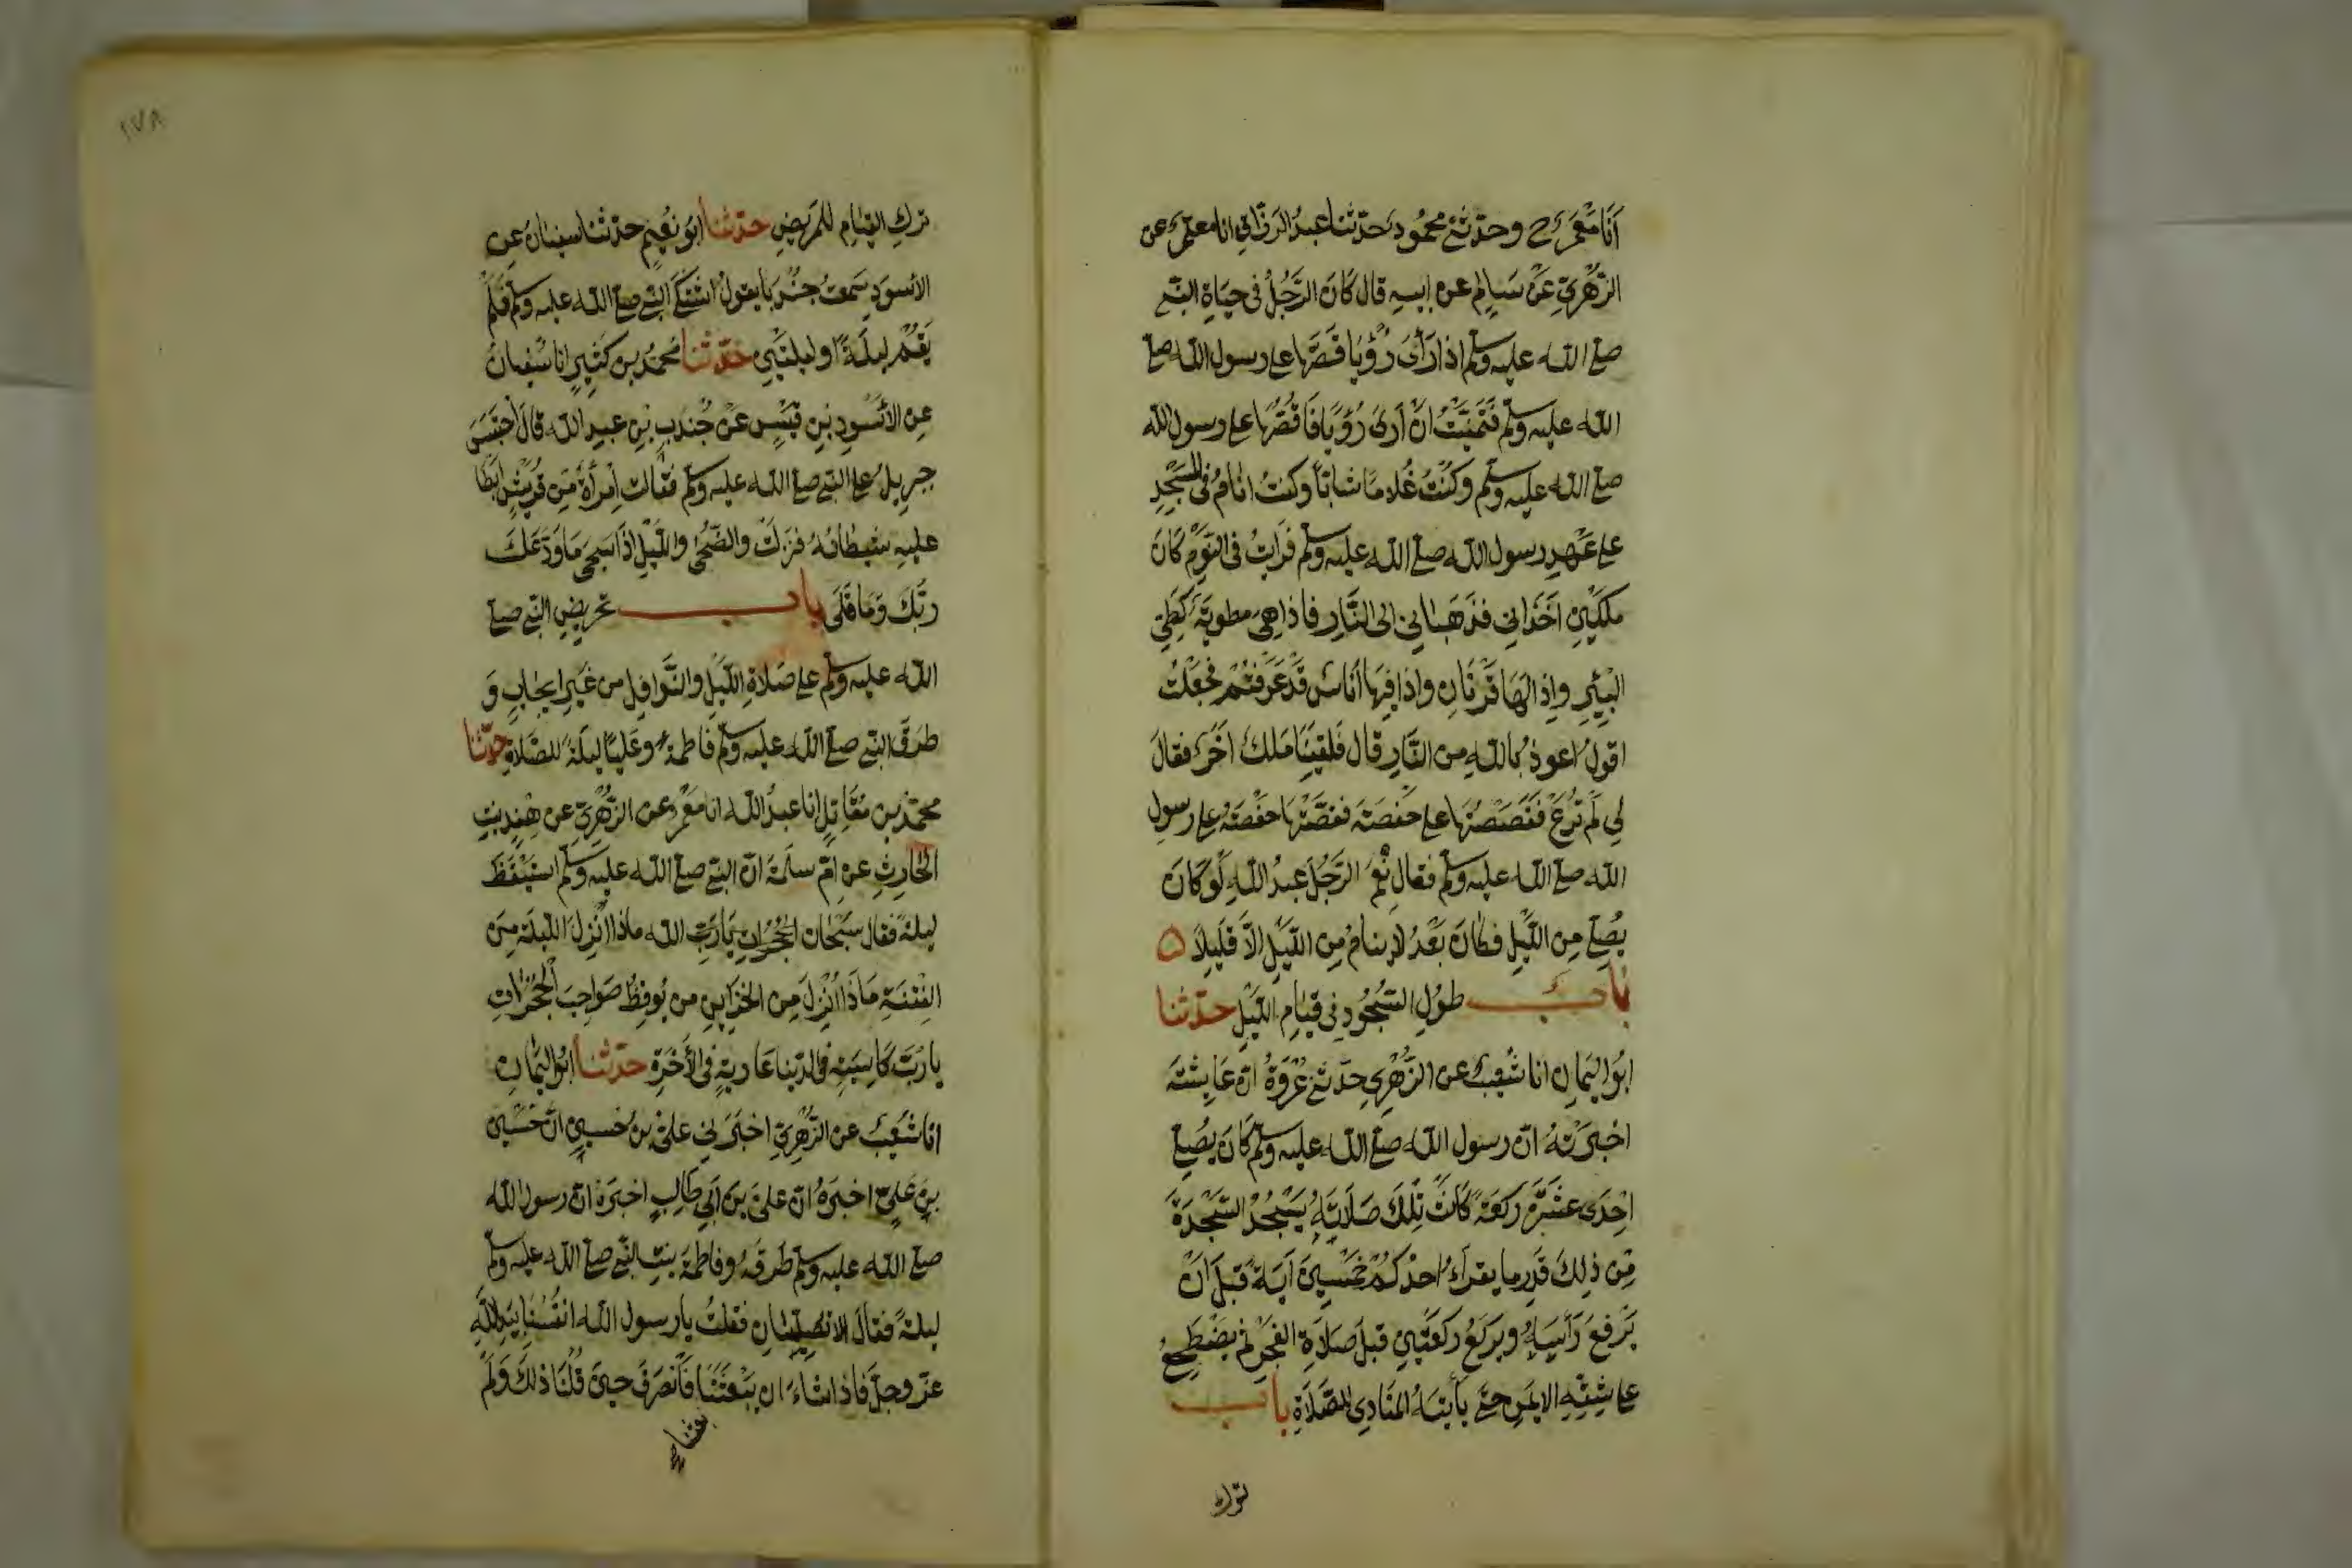 أنا مَعْمَرٌ ح وحدثني محمود حدثنا عبد الرزاق انا معمر عن
الزُهْرِيّ عَنْ سَالِمٍ عن ابيه قال كَانَ الرَّجُلُ فى حيَاةِ النبى
صلى الله عليه وسلم اذا رَأىَ رُؤْيَا قَصَّهَا على رسول الله صلى
الله عليه وسلم فَتَمَنَّيْتُ انْ أرىَ رُؤيَا فَاقُصُّهَا على رسول الله
صلى الله عليه وسلم وكُنْتُ غُلامًا شابّاً وكنتُ انَامُ فى المسْجِدِ
على عَهْدِ رسول الله صلى الله عليه وسلم فرَايتُ فى النَوْمِ كَانَ
ملكَيْنِ اخَذَانِى فذهَبَا بِى الى النَّارِ فاذا هِىَ مطويَّة كَطَىّ
البِيْرِ واِذا لهَا قَرْنَانِ واذا فِيهَا أنَاسٌ قَدْ عَرَفْتُهُمْ فجَعَلْتُ
اقولُ اعوذُ بالله من النَّارِ قال فَلقِيَنَا مَلكٌ اخَرُ فقالَ
لِى لَمْ تُرَعْ فَقَصَصْتُهَا على حَفصَةَ فقصَّتْهَا حفْصَةُ على رسولِ
الله صلى الله عليه وسلم فقال نِعْمَ الرَّجُلُ عبدُ اللهِ لَوْ كَانَ
يُصَلّى مِن اللّيْلِ فكَانَ بَعْدُ لا ينامُ مِن اللَيْلِ الاَّ قَلِيلاً ه
بابُ طوُلِ السُّجُودِ فى قيَامِ اللَيْلِ حدّثنا
ابُو اليَمانِ انا شُعيبٌ عن الزُهْرِى حدّثنى عُرْوَةُ انّ عَايشَةَ
اخبرَتْهُ انّ رسول الله صلى الله عليه وسلم كَانَ يُصَلّى
اِحْدَى عَشْرَةَ ركعَةً كَانَتْ تِلْكَ صَلَاتَهُ يَسْجُدُ السَّجْدَةَ
مِن ذلِكَ قَدرَ ما يقرَاءُ احدُكُمْ خَمْسِينَ آيَةً قبلَ انْ
يَرْفعَ رَأسَهُ ويركَعُ ركعَتَيْنِ قبلَ صَلاَةِ الفَجْرِ ثم يَضْطَجِعُ
على شِقِّهِ الايمَنِ حتّى يأتيَهُ المنَادِى للصَّلَاةِ بابُ
ترك
تركِ القِيَامِ للمَريضِ حدّثنا ابُو نُعَيْمٍ حدّثنا سفيانُ عن
الاسْودِ سَمعتُ جنْدَبًا يقولُ اشْتَكَى النبى صلى الله عليه وسلم فَلَمْ
يَقُمْ ليلَةً او ليلتَيْنِ حَدّثنا محمدُ بن كثيرٍ انا سُفيانُ
عن الأسْودِ بنِ قيْسٍ عَنْ جُندَبِ بْنِ عبدِ الله قالَ احْتبَسَ
جبريلُ على النبى صلى الله عليه وسلم فقالت اِمْرأةٌ مِن قُريشٍ ابْطَا
عليهِ شيطانُهُ فنزلَتْ والضّحَى واللّيْلِ اذَا سَجىَ مَا وَدّعَكَ
ربّكَ وَمَا قَلَى بابُ تحريضِ النبى صلى
الله عليه وسلم على صَلاةِ اللّيْلِ والنَّوافِلِ من غَيْرِ ايجابٍ وَ
طرَقَ النبى صلى الله عليه وسلم فَاطمةَ وعَليّا ليلَةً للصَّلاةِ حدّثنا
محمدُ بن مُقَاتِلٍ انا عبدُ الله انا مَعْمَرٌ عن الزُّهْرِىّ عن هِنْدٍ بنتِ
الحَارِثِ عن امّ سلَمَةَ انّ النبى صلى الله عليه وسلم استيْقَظَ
ليلةً فقال سُبْحَان الله ماذا اُنْزِلَ الليلَةَ مِنَ
الفِتْنَةِ مَاذَا اُنْزِلَ مِن الخزَاينِ من يُوقظُ صَواحِبَ الحُجُرَاتِ
يا رُبَّ كَاسِيَةٍ فى الدّنيا عَاريةٍ فى الأخَرَةِ حدّثنا ابُو اليَمانِ
انا شُعَيبٌ عن الزُّهْرِىّ اخبَرَنِى علىّ بنُ حُسيْنٍ انّ حُسَيْنَ
بنَ عَلىّ اخبَرَهُ انّ علىّ بنَ أبى طَالِبٍ اخبَرَهُ انّ رسولَ الله
صلى الله عليه وسلم طَرقَهُ وفاطمَةَ بنتِ النّبى صلى الله عليه وسلم
ليلةً فقالَ الا تُصَلِّيَانِ فقلتُ يا رسول الله انْفُسُنَا بيَدِ اللّهِ
عزّ وجلّ فاذا شاءَ ان يبعَثَنَا بعَثَنا فَانْصَرَفَ حينَ قُلْنَا ذلكَ وَلَمْ
بعثنا صح
٢٧٨